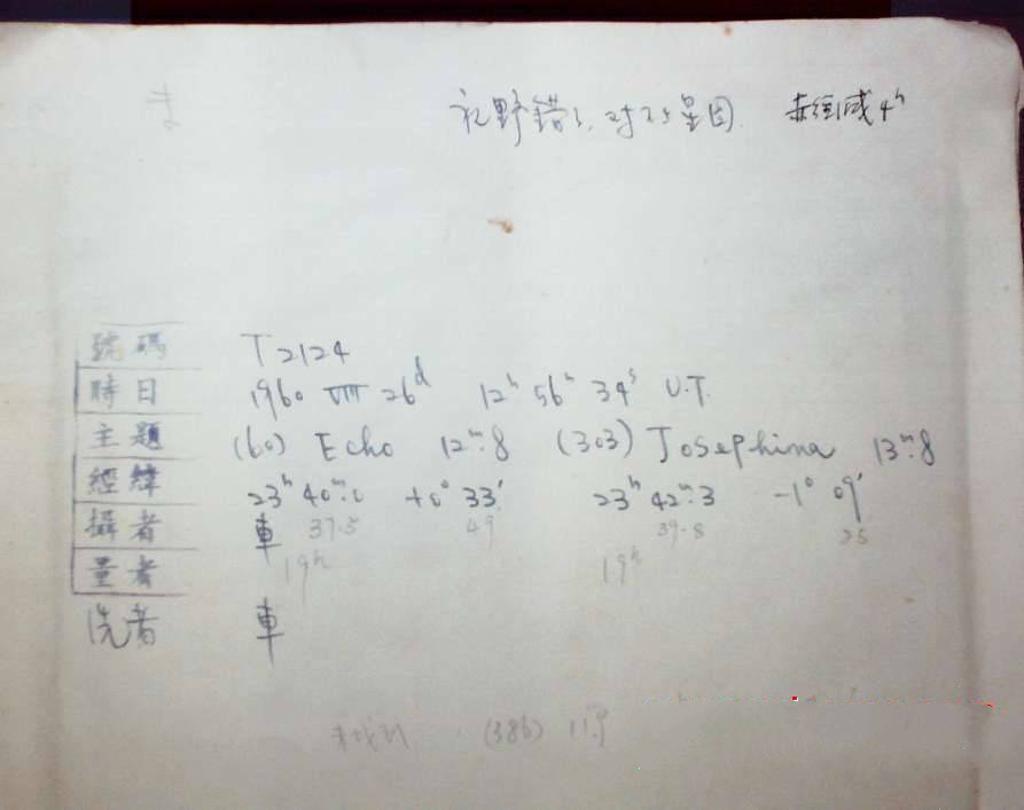 視野錯了,对25星图. 赤经减4ʰ
號碼 T2124
時日 1960 Ⅷ 26ᵈ 12ʰ 56ᵐ 34ˢ U.T.
主題 (60) Echo 12ᵐ.8 (303) Josephina 13ᵐ.8
經緯 23ʰ 40ᵐ.0 +0° 33′ 23ʰ 42ᵐ.3 -1° 09′
攝者 車 37.5 49 39.8 25
量者 19ʰ 19ʰ
洗者 車
(386) 11.9